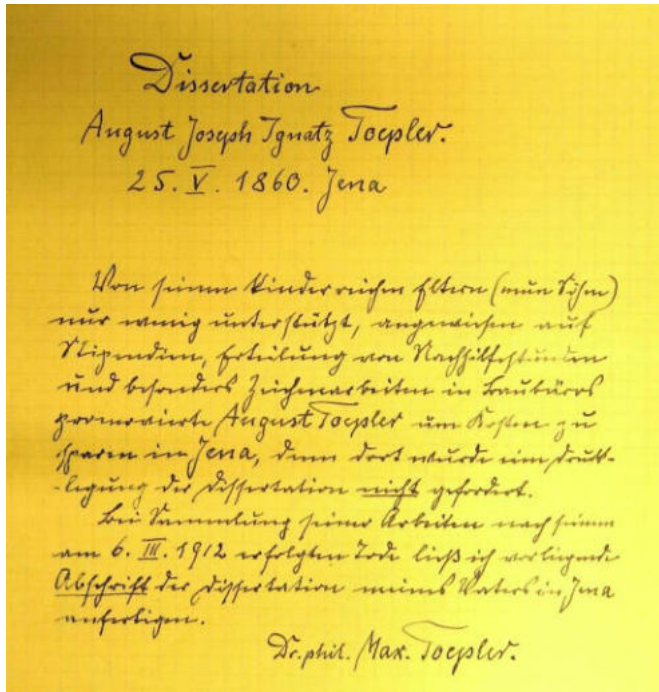 Dissertation
August Joseph Ignatz Toepler.
25. V. 1860. Jena
Von seinen kinderreichen Eltern (neun Söhne)
nur wenig unterstützt, angewiesen auf
Stipendien, Erteilung von Nachhilfestunden
und besonders Zeichenarbeiten in Baubüros
promovierte August Toepler um Kosten zu
sparen in Jena, denn dort wurde eine Druck-
-legung der Dissertation nicht gefordert.
Bei Sammlung seiner Arbeiten nach seinem
am 6. III. 1912 erfolgten Tode ließ ich vorliegende
Abschrift der Dissertation meines Vaters in Jena
anfertigen.
Dr. phil. Max. Toepler.